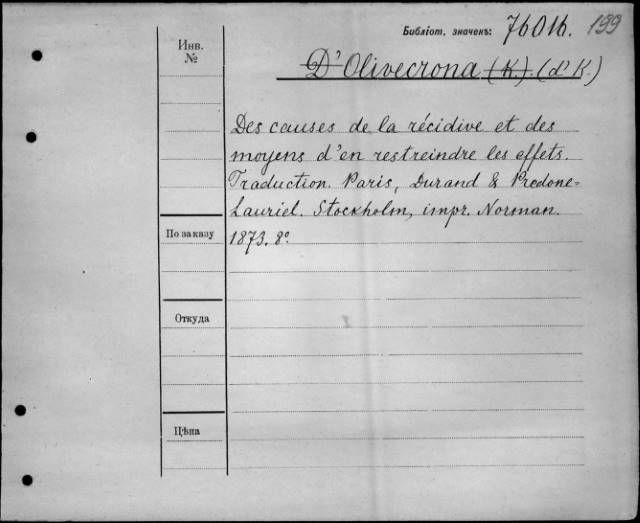 Библіот. значекъ: 76016. 199
Инв.
№
D'Olivecrona (K.) (d'K.)
Des causes de la récidive et des
moyens d'en restreindre les effets.
Traduction. Paris, Durand & Predone-
Lauriel. Stockholm, impr. Norman.
По заказу
1873. 8º.
Откуда
Цѣна